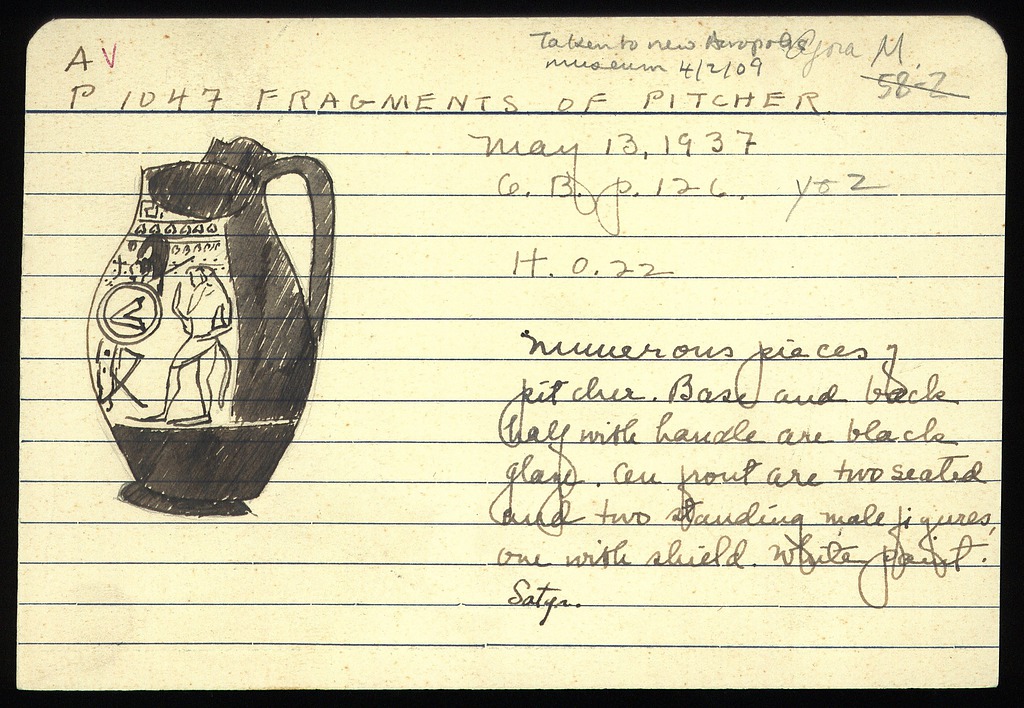 Taken to new Acropolis
museum 4/2/09
Agora M.
58-2
A V
P 1047 FRAGMENTS OF PITCHER
May 13, 1937
G. B. p. 126. yoz
H. 0.22
Numerous pieces of
pitcher. Base and back
half with handle are black
glaze. On front are two seated
and two standing male figures,
one with shield. White paint.
Satyr.